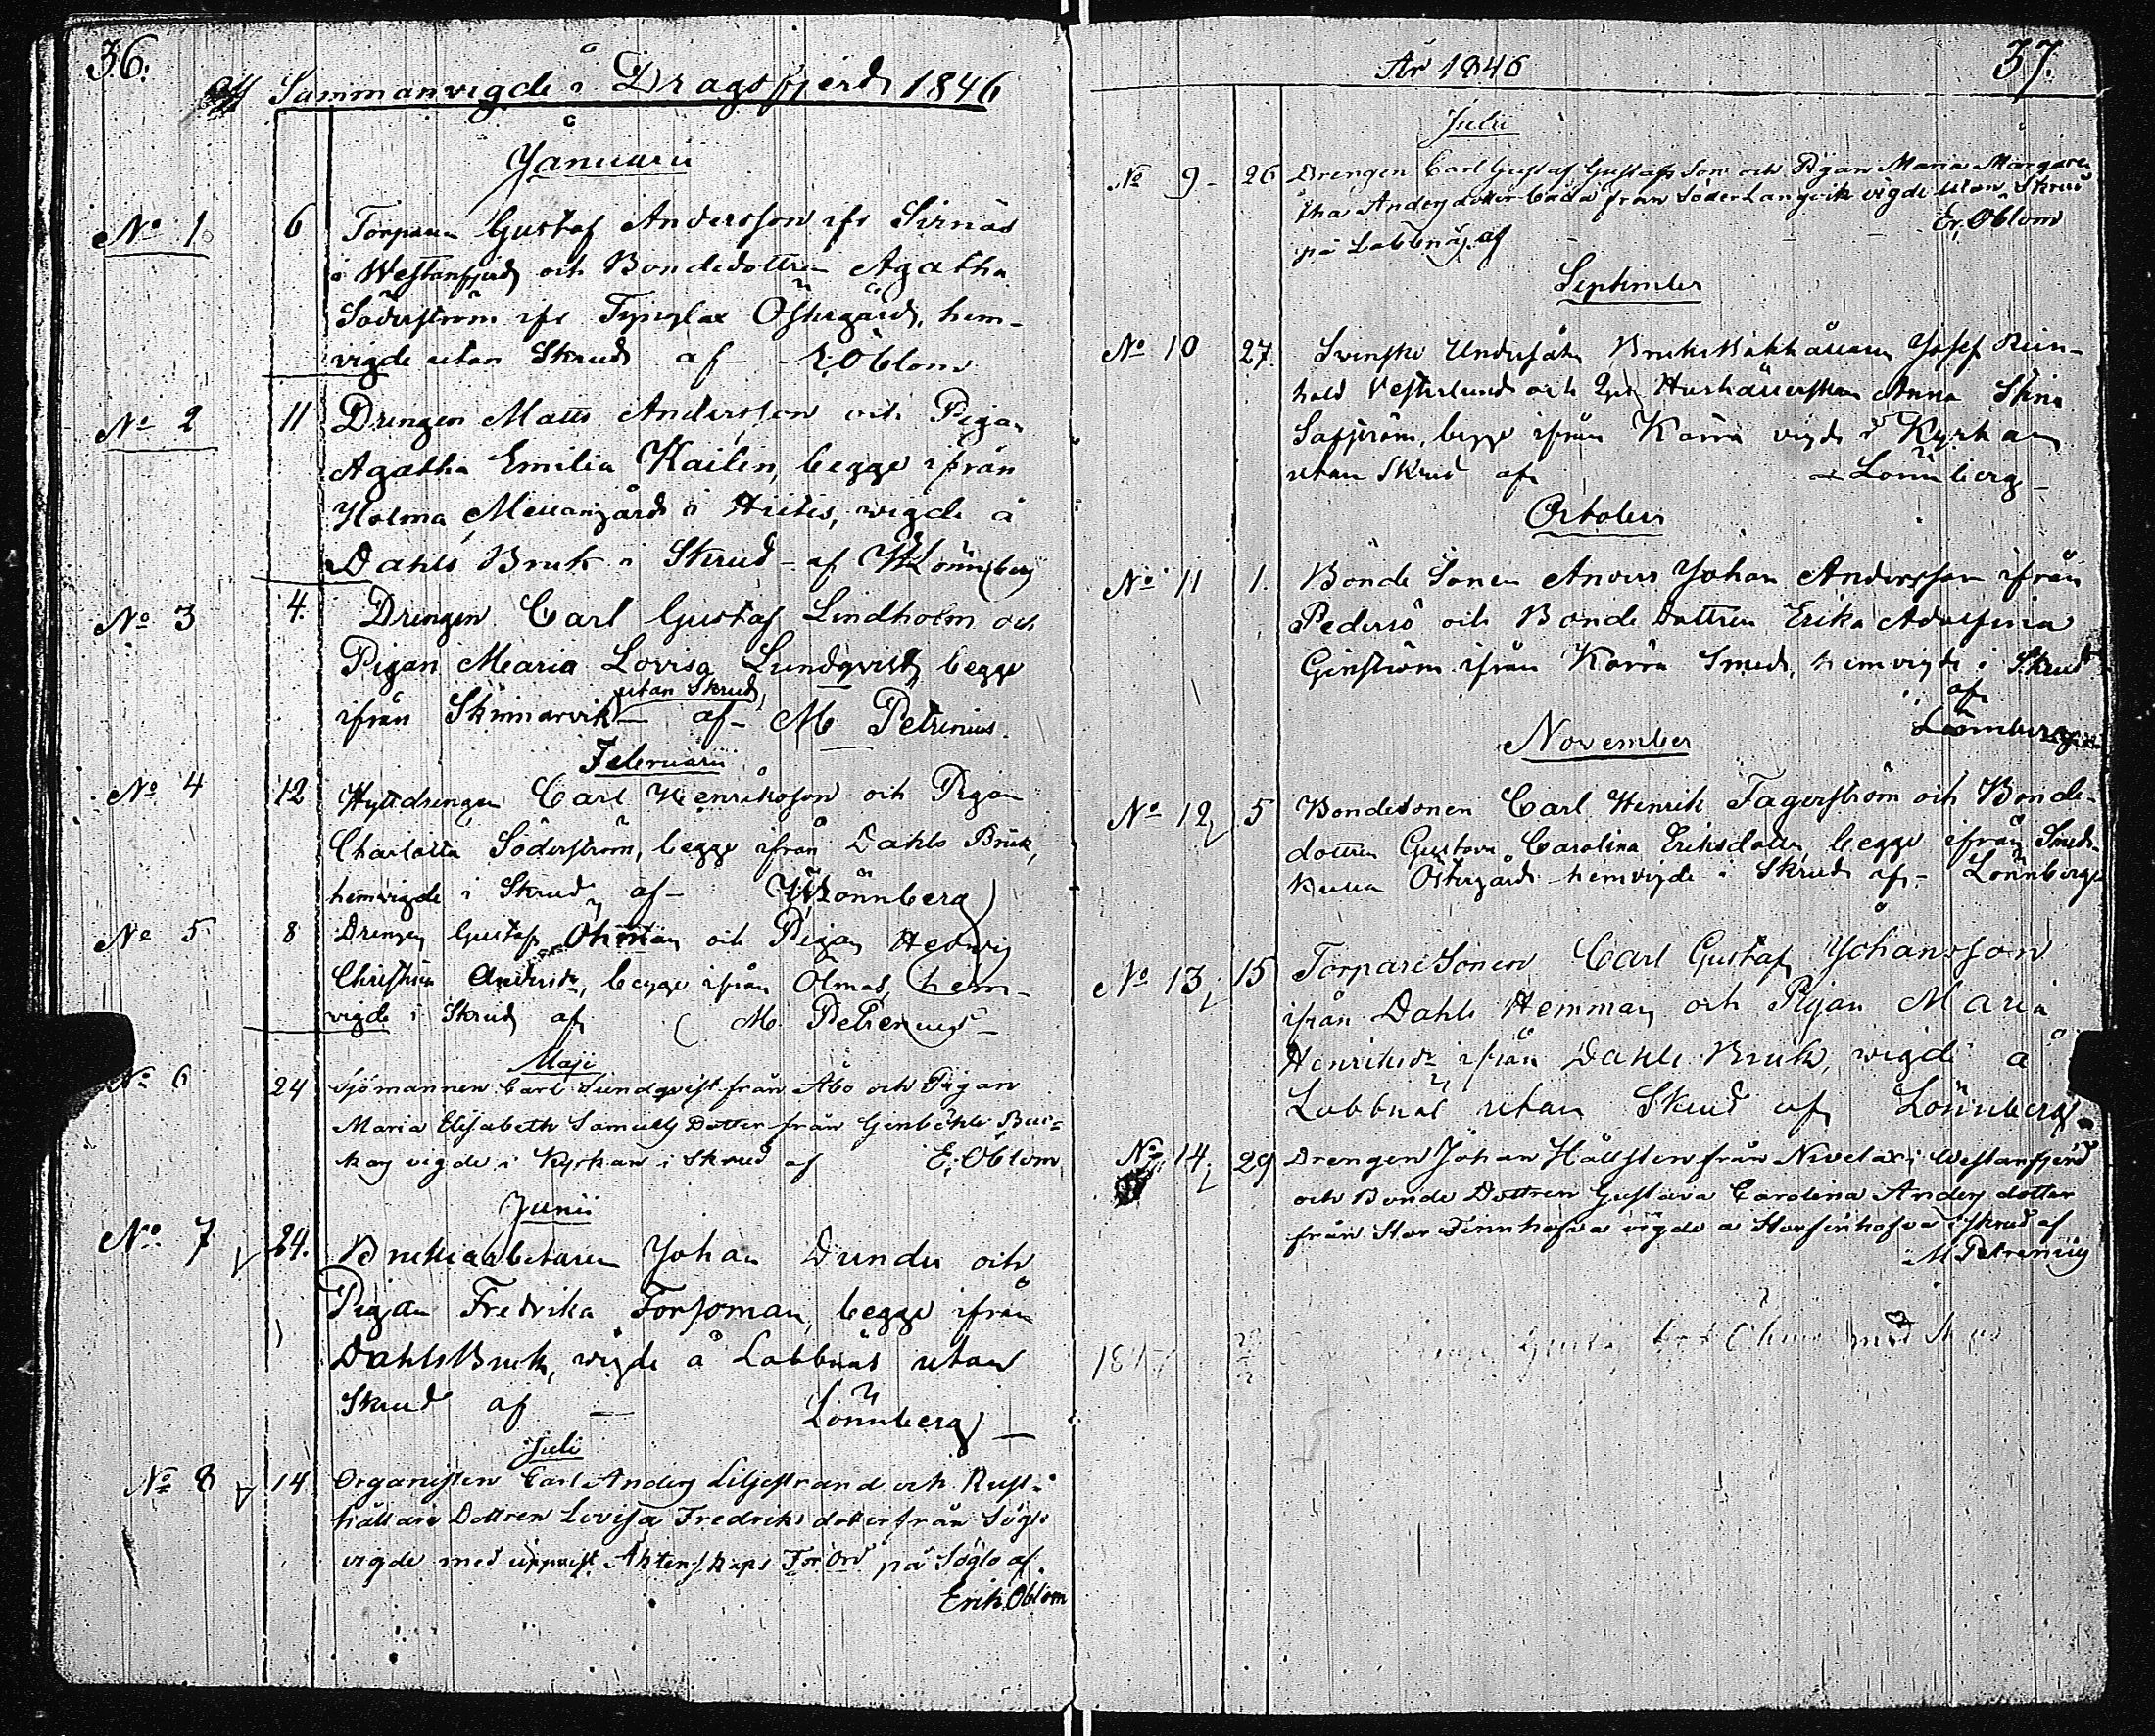 36.
Sammanvigde i Dragsfjerd 1846
Januarii
No 1. 6 Torparen Gustaf Andersson ifr Sirnäs
i Westanfjerd och Bondedottren Agatha
Söderström ifr Öströgård, hem-
vigde utan Skrud af - E. Öblom
No 2 11 Drengen Matts Andersson och Pigan
Agatha Emilia Kailén, begge ifrån
Holma Mellangård i Hitis, wigde å
Dahls Bruk i Skrud - af W Lönnberg
No 3 4. Drengen Carl Gustaf Lindholm och
Pigan Maria Lovisa Lundqvist, begge
utan Skrud,
ifrån Skinnarvik - af - M Petrenius.
Februarii
No 4 12 Hyttdrengen Carl Henriksson och Pigan
Charlotta Söderström, begge ifrån Dahls Bruk,
hemvigde i Skrud af - W Lönnberg
No 5 8 Drengen Gustaf Öhman och Pigan Hedvig
Christina Andersdr, begge ifrån Ölmos, hem-
vigde i Skrud af M. Petrenius -
Maji
No 6 24 Sjömannen Carl Sundqvist från Åbo och Pigan
Maria Elisabeth Samuels Dotter från Genböhle
vigde i Kyrkan i Skrud af E. Öblom
Junii
No 7 24. Bruksarbetaren Johan Dunder och
Pigan Fredrika Forsoman, begge ifrån
Dahls Bruk, wigde å Labbnäs utan
Skrud af - Lönnberg -
Juli
No 8 14 Organisten Carl Anders Liljestrand och Rust-
hållare Dottren Lovisa Fredriks dotter från Söglö
vigde med uppvist Äktenskaps Förord på Söglö af
Erik Öblom
År 1846 37.
Julii
No 9 - 26 Drengen Carl Gustaf Gustafs Son och Pigan Maria Margare
tha Anders dotter båda från Söder Langvik vigde utan Skrud
på Labbnäs af - - - Er. Öblom
September
No 10 27. Svenske Undersåten Bruks Bokhållaren Josef Rein-
hold Vesterlund och Hushållerskan Anna Stina
Safström, begge ifrån Kärra vigde i Kyrkan
utan Skrud af - Lönnberg -
October
No 11 1. Bonde Sonen Anders Johan Andersson ifrån
Pedersö och Bonde Dottren Erika Adolfina
Ginström ifrån Kärra Smeds, hemvigde i Skrud
af
Lönnberg
November
No 12, 5 Bondesonen Carl Henrik Fagerström och Bonde-
dottren Gustava Carolina Eriksdotter, begge ifrån Smeds-
Östergård hemvigde i Skrud af - Lönnberg
No 13, 15 Torpare Sonen Carl Gustaf Johansson
ifrån Dahls Hemman och Pigan Maria
Henriksdr ifrån Dahls Bruk, wigde å
Labbnäs utan Skrud af Lönnberg
No 14, 29 Drengen Johan Hällsten från Nivelax i Westanfjerd
och Bonde Dottren Gustava Carolina Anders dotter
från Stor Finnhofva vigde å Storfinhofva i Skrud af
M Petrenius